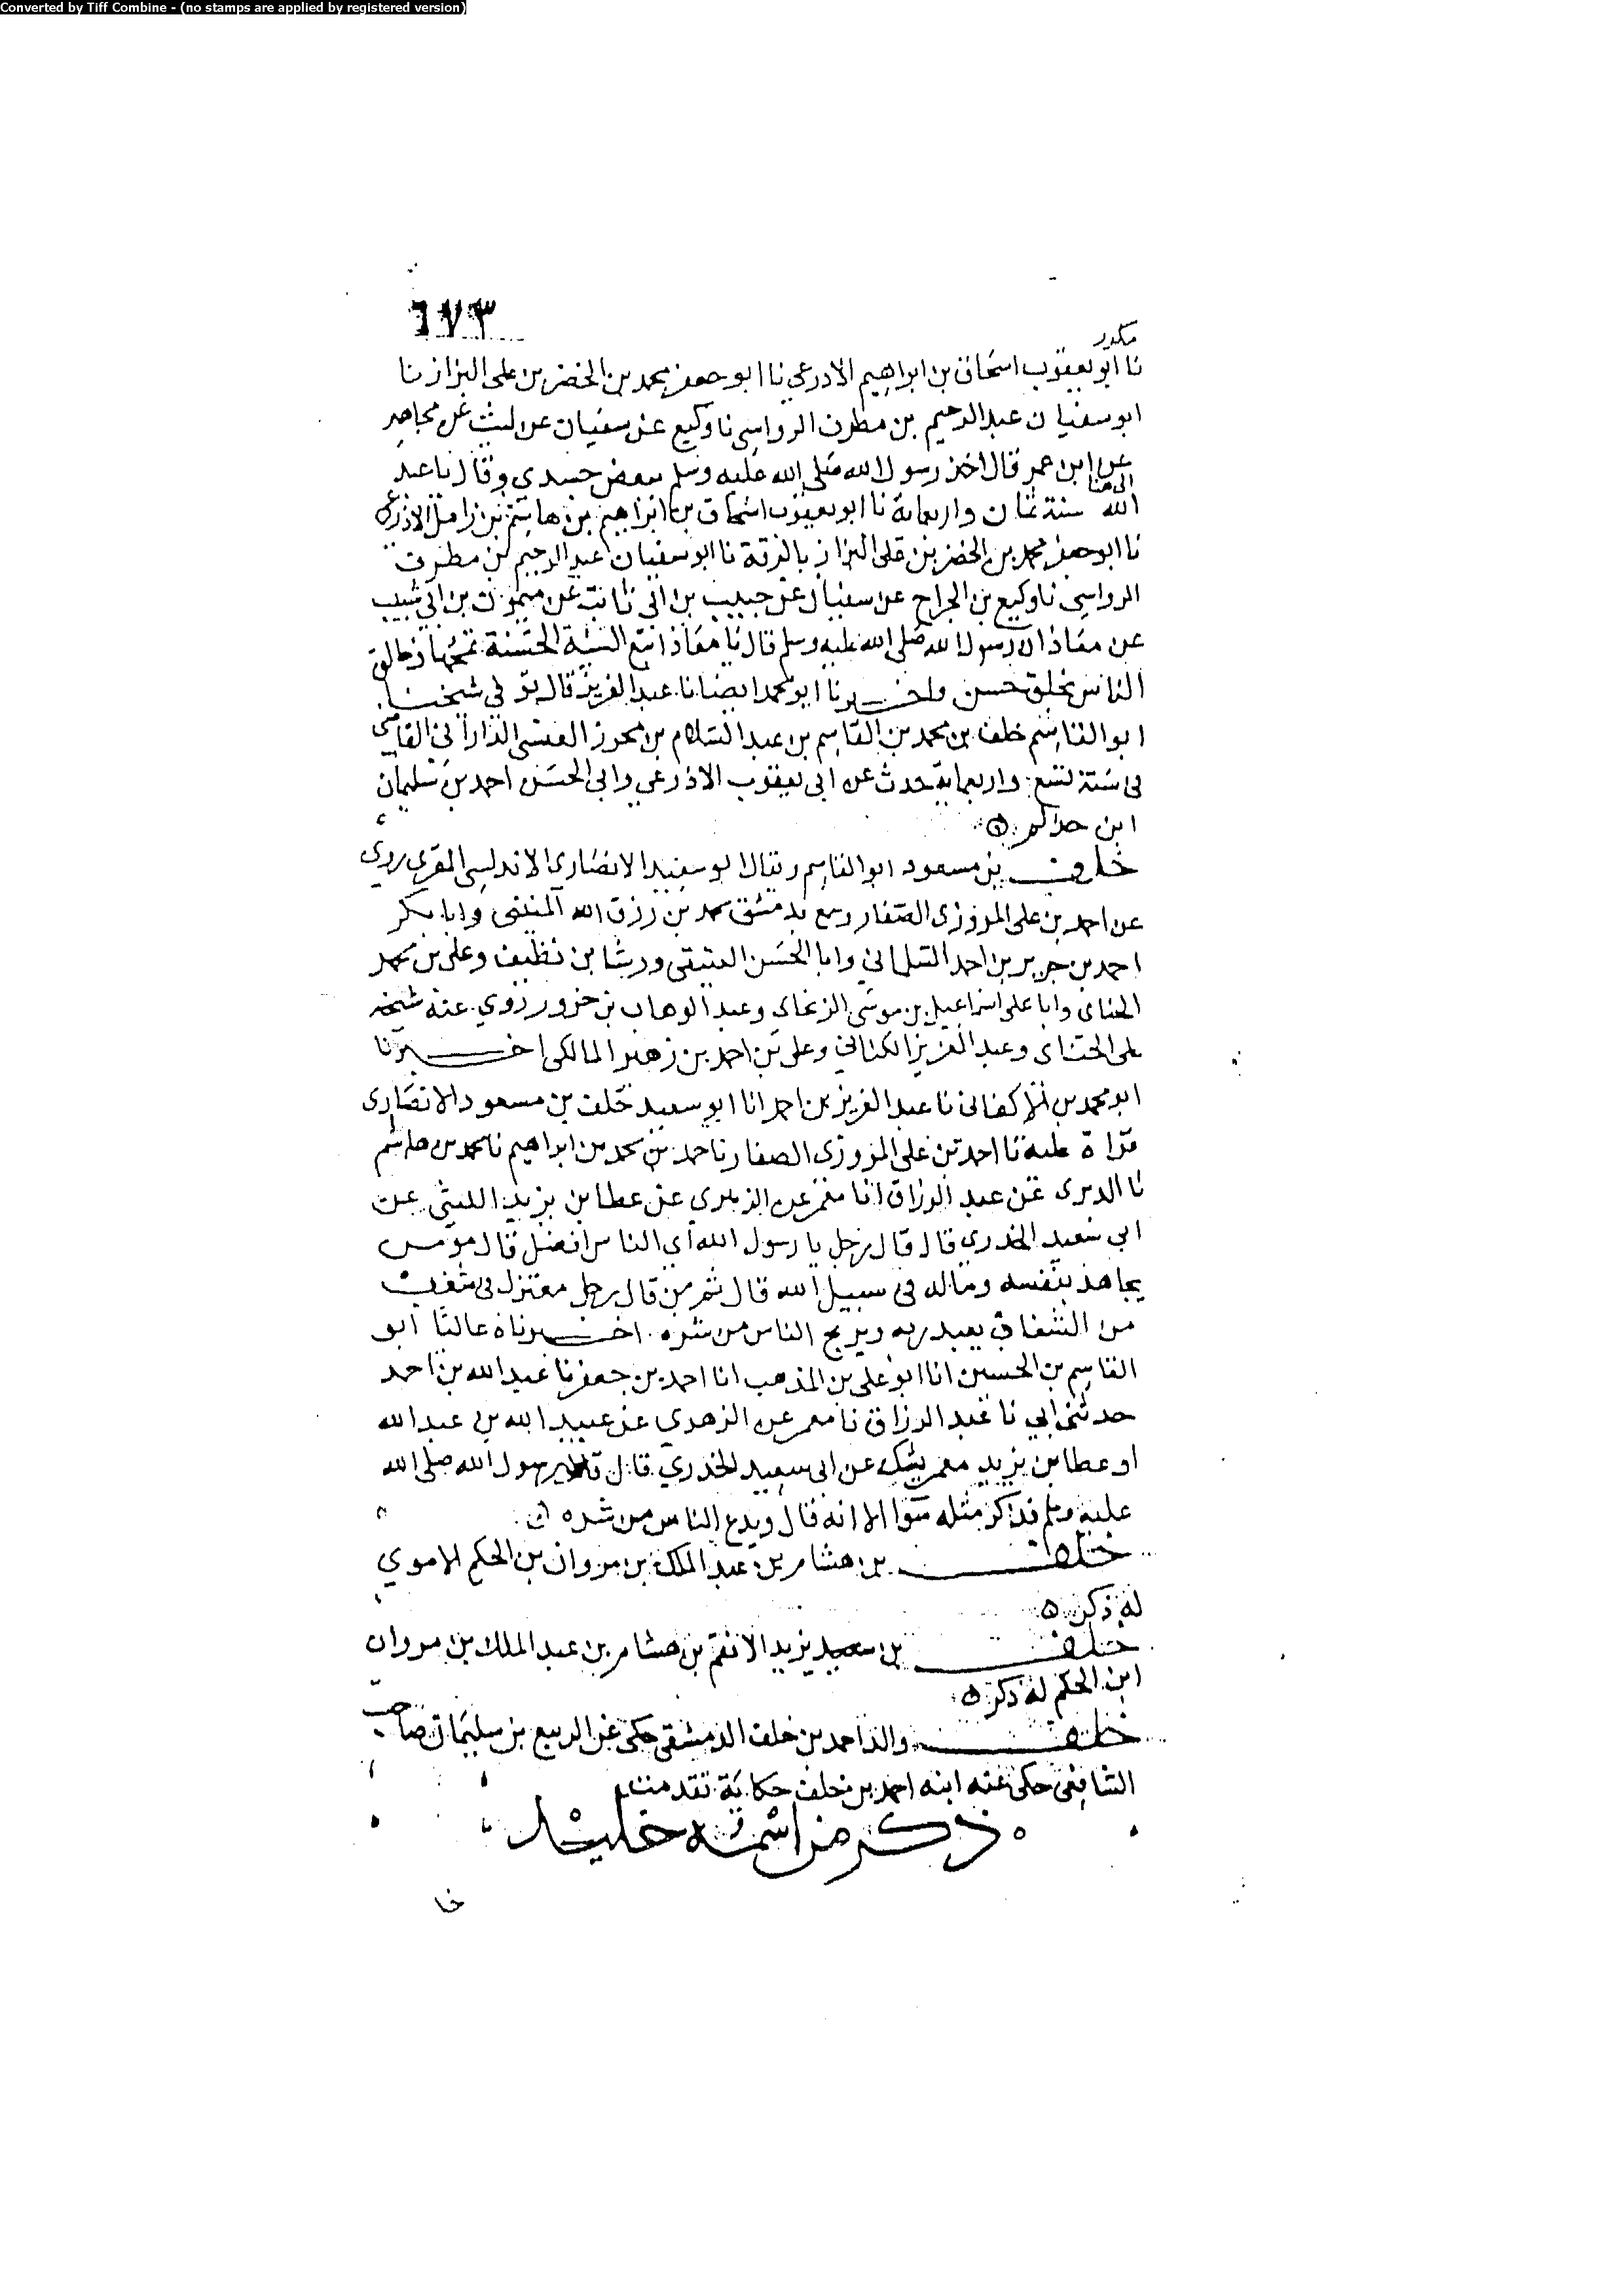 Converted by Tiff Combine - (no stamps are applied by registered version)
٦٧٣
مكرر
نا ابو يعقوب اسحاق بن ابراهيم الاذرعي نا ابو جعفر محمد بن الخضر بن على البزاز نا
ابو سفيان عبد الرحيم بن مطرف الرواسي نا وكيع عن سفيان عن ليث عن مجاهد
عن ابن عمر قال اخذ رسول الله صلى الله عليه وسلم ببعض جسدي وقال نا عبد
الى هنا
الله سنة ثمان واربعماية نا ابو يعقوب اسحاق بن ابراهيم بن هاشم بن زامل الاذرعي
نا ابو جعفر محمد بن الخضر بن على البزاز بالرقة نا ابو سفيان عبد الرحيم بن مطرف
الرواسي نا وكيع بن الجراح عن سفيان عن حبيب بن ابي ثابت عن ميمون بن ابي شبيب
عن معاذ ان رسول الله صلى الله عليه وسلم قال يا معاذ اتبع السيئة الحسنة تمحها وخالق
الناس بخلق حسن واخبرنا ابو محمد ايضا نا عبد العزيز قال توفي شيخنا
ابو القاسم خلف بن محمد بن القاسم بن عبد السلام بن محرز العنسي الداراني القاضي
في سنة تسع واربعماية حدث عن ابي يعقوب الاذرعي وابي الحسن احمد بن سليمان
ابن حذلم
خلف بن مسعود ابو القاسم ويقال ابو سعيد الانصاري الاندلسي المقرى روى
عن احمد بن على المروزى الصفار وسمع بدمشق محمد بن رزق الله المنيني وابا بكر
احمد بن جرير بن احمد السلماني وابا الحسن العتيقي ورشا بن نظيف وعلى بن محمد
الحناى وابا على اسماعيل بن موسى الزعاى وعبد الوهاب بن حزور روي عنه شيخه
على الحناى وعبد العزيز الكتاني وعلى بن احمد بن زهير المالكى اخبرنا
ابو محمد بن الاكفانى نا عبد العزيز بن احمد انا ابو سعيد خلف بن مسعود الانصارى
قراة عليه نا احمد بن على المروزى الصفار نا حمد بن محمد بن ابراهيم نا محمد بن هاشم
نا الدبرى عن عبد الرزاق انا معمر عن الزهري عن عطا بن يزيد الليثى عن
ابي سعيد الخدري قال قال رجل يا رسول الله اي الناس افضل قال مؤمن
يجاهد بنفسه وماله في سبيل الله قال ثم من قال رجل معتزل في شعب
من الشعاب يعبد ربه ويريح الناس من شره اخبرناه عاليا ابو
القاسم بن الحسين انا ابو على بن المذهب انا احمد بن جعفر نا عبد الله بن احمد
حدثنى ابي نا عبد الرزاق نا معمر عن الزهري عن عبيد الله بن عبد الله
او عطا بن يزيد معمر يشك عن ابي سعيد الخدري قال قالوا يرسول الله صلى الله
عليه وسلم فذكر مثله سوا الا انه قال ويدع الناس من شره
خلف بن هشام بن عبد الملك بن مروان بن الحكم الاموي
له ذكر
خلف بن سعيد يزيد الافقم بن هشام بن عبد الملك بن مروان
ابن الحكم له ذكر
خلف والد احمد بن خلف الدمشقى حكى عن الربيع بن سليمان صاحب
الشافعى حكى عنه ابنه احمد بن خلف حكاية تقدمت
ذكر من اسمه خليد
خا